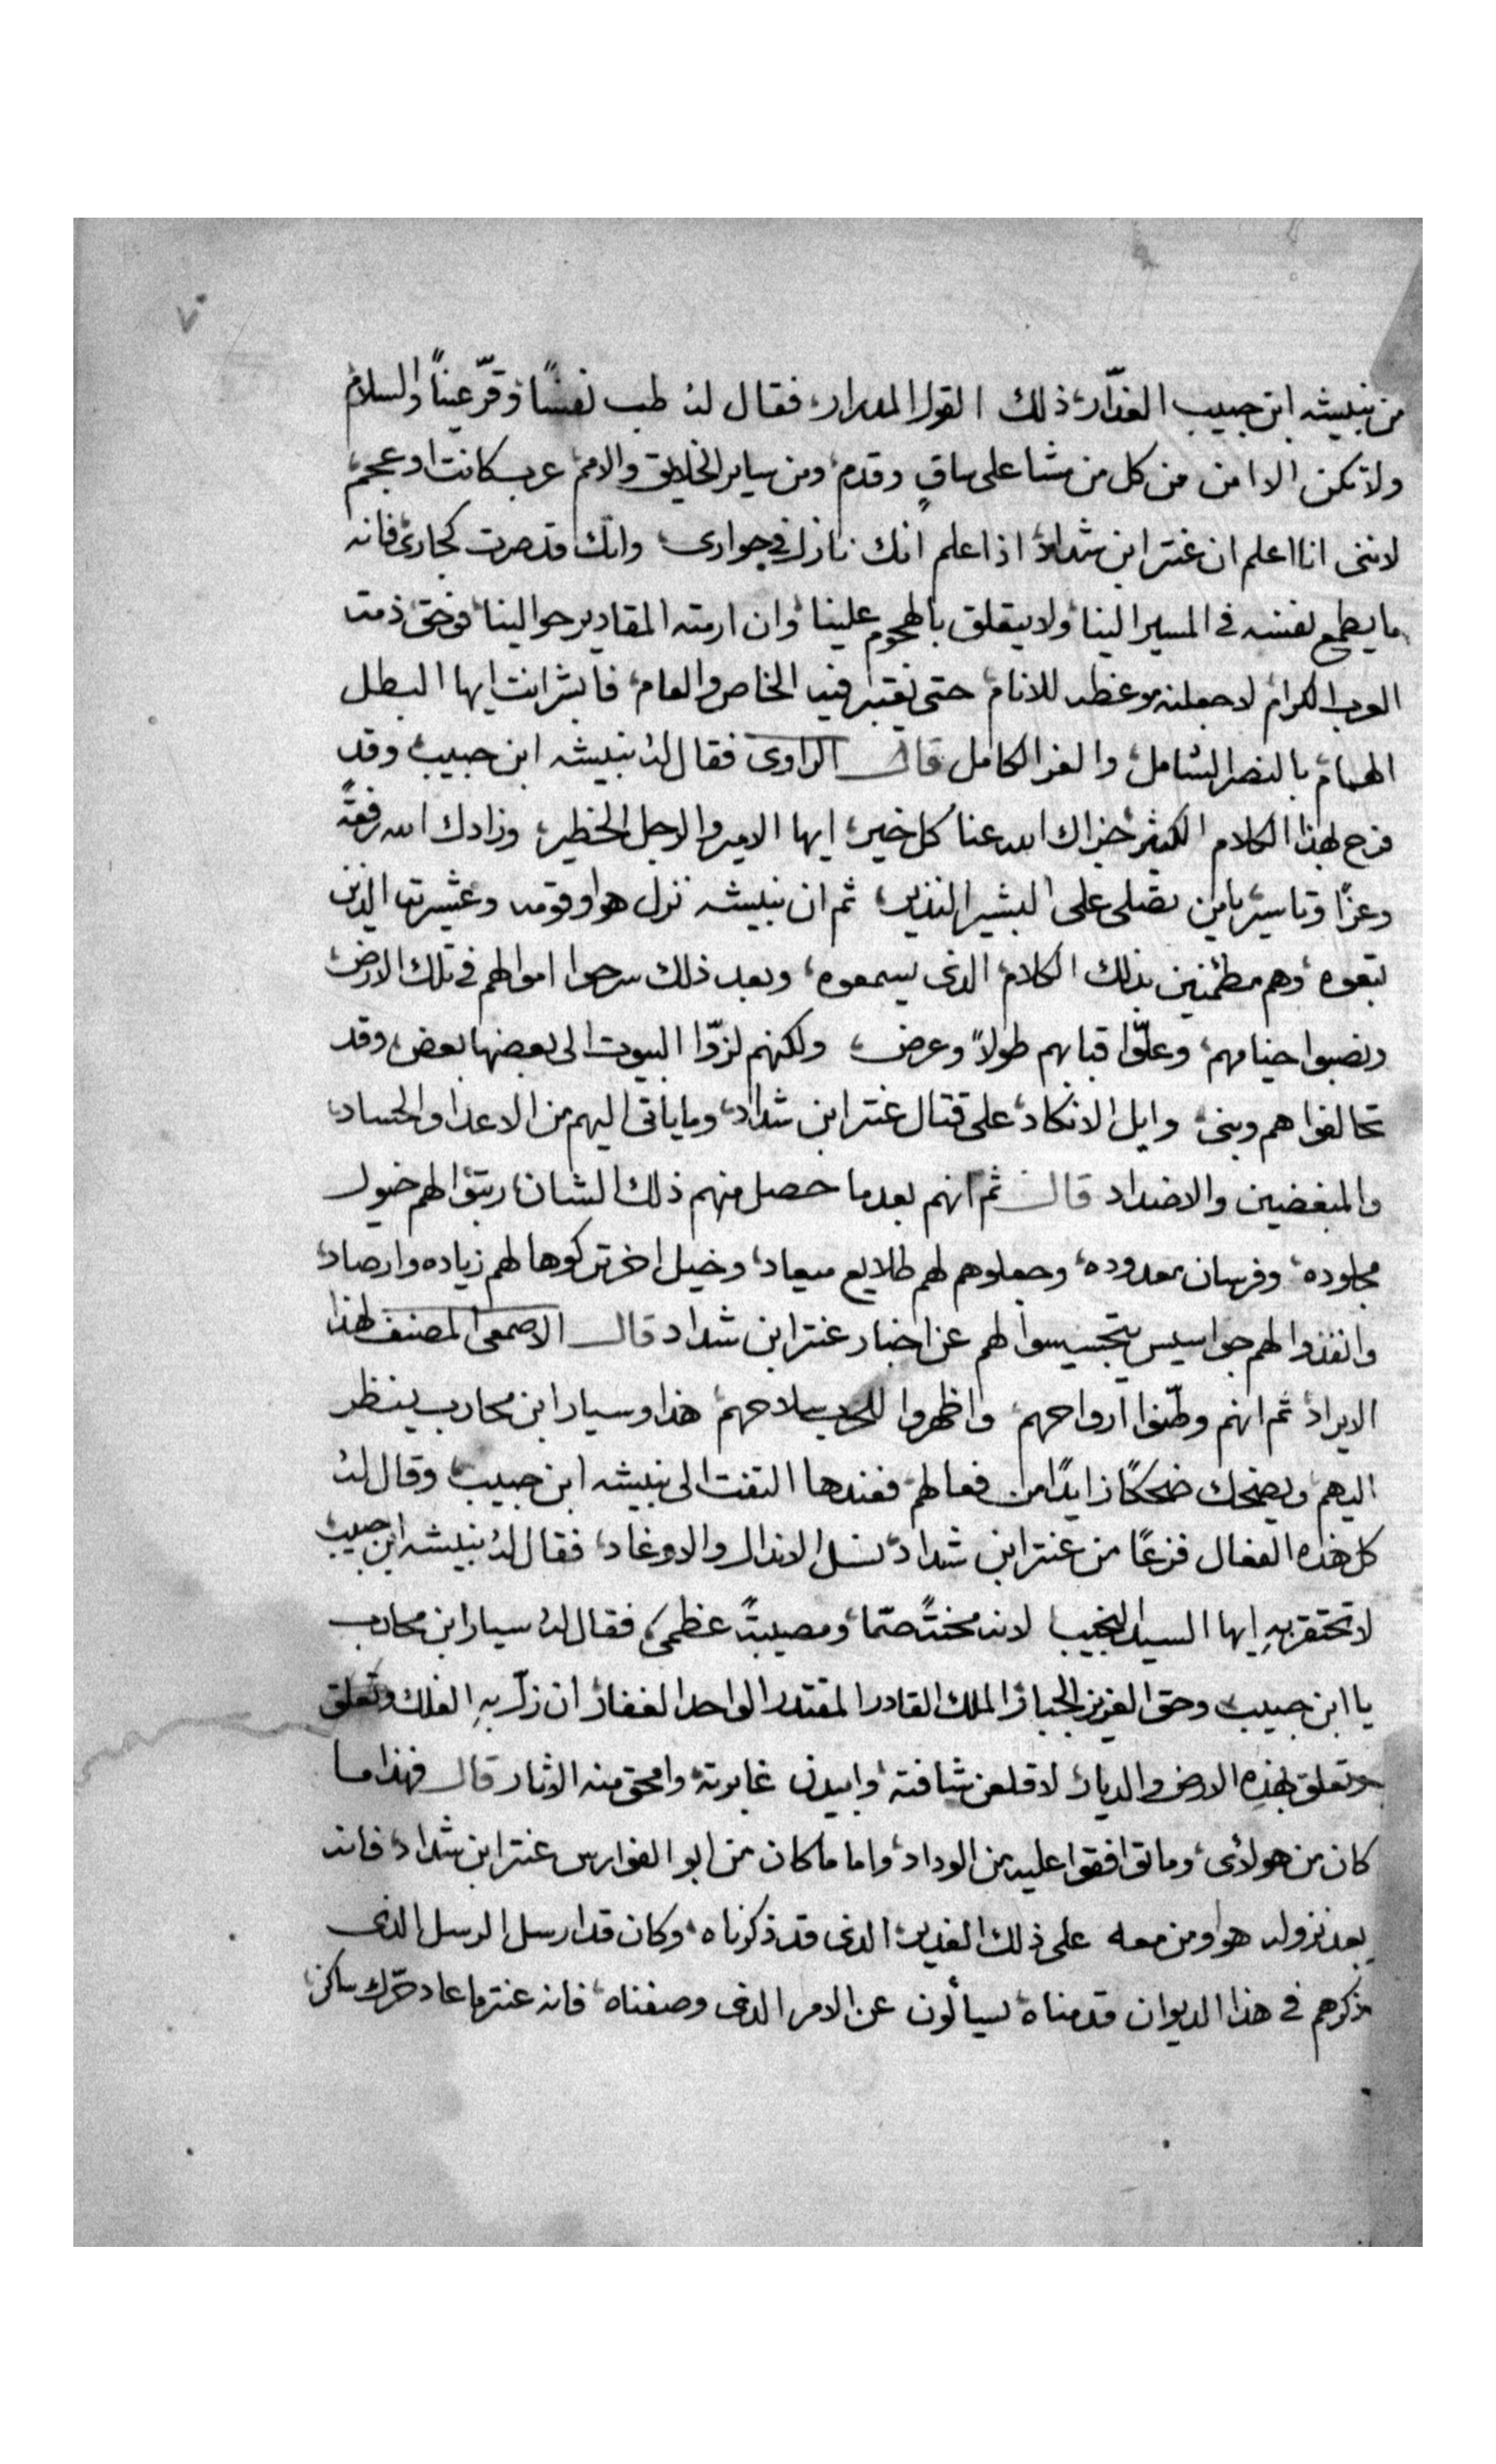 ٧
من نبيشه ابن حبيب الغدّار، ذلك القول المدرار، فقال لهُ طب نفسًا وقرّ عينًا والسلام
ولا تكن الا امن من كل من مشا على ساقٍ وقدم، ومن ساير الخلايق والامم، عرب كانت او عجم،
لانني انا اعلم ان عنتر ابن شداد، اذا علم انك نازل في جواري، وانك قد صرت كجاري، فانه
ما يطمع نفسه في المسير الينا، ولا يتقلق بالهجوم علينا، وان ارمته المقادير حوالينا، فوحق ذمت
العرب الكرام، لاجعلنه موعظه للانام، حتى تعتبر فيه الخاص والعام، فابشر انت ايها البطل
الهمام، بالنصر الشامل، والعز الكامل قال الراوي فقال لهُ نبيشه ابن حبيب، وقد
فرح لهذا الكلام الكثير، جزاك الله عنا كل خير، ايها الامير والاجل الخطير، وزادك الله رفعةً
وعزًا وتاسير، يا من يصلي على البشير النذير، ثم ان نبيشه نزل هوا وقومه وعشيرته الذين
تبعوه، وهم مطمئنين بذلك الكلام، الذي يسمعوه، وبعد ذلك سرحوا اموالهم في تلك الارض،
ونصبوا خيامهم، وعلّوا قبابهم طولاً وعرض، ولكنهم لزّوا البيوت الى بعضها بعض، وقد
تحالفوا هم وبني، وايل الانكاد، على قتال عنتر ابن شداد، وما ياتي اليهم من الاعدا والحساد،
والمبغضين والاضداد قال ثم انهم بعد ما حصل منهم ذلك الشان، ربتوا لهم خيول
مجلوده، وفرسان معدوده، وجعلوهم لهم طلايع ميعاد، وخيل اخر تركوها لهم زياده وارصاد،
وانفذوا لهم جواسيس يتجسسوا لهم عن اخبار عنتر ابن شداد قال الاصمعي المصنف لهذا
الايراد، ثم انهم وطّنوا ارواحهم، واظهروا للحرب سلاحهم، هذا وسيار ابن محارب ينظر
اليهم، ويضحك ضحكًا زايدًا من فعالهم، فعندها التفت الى نبيشه ابن حبيب، وقال لهُ
كل هذه الفعال فزعًا من عنتر ابن شداد، نسل الاندال والاوغاد، فقال لهُ نبيشه ابن حبيب،
لا تحتقر بهِ ايها السيد النجيب لانه محنتً صمّا، ومصيبتً عظمى، فقال لهُ سيار ابن محارب
يا ابن حبيب، وحق العزيز الجبار، الملك القادر المقتدر الواحد الغفار، ان زلّ بهِ الفلك وتعلق
وتعلق بهذِه الارض والديار، لاقلعن شافته، وابيدن غابرته، وامحق منه الاثار قال فهذا ما
كان من هولائي، وما توافقوا عليه من الوداد، واما ما كان من ابو الفوارس عنتر ابن شداد، فانه
بعد نزوله هوا ومن معه على ذلك الغدير، الذي قد ذكرناه، وكان قد ارسل الرسل الذي
ذكرهم في هذا الديوان قدمناه، لسيألون عن الامر الذي وصفناه، فانه عنتر ما عاد حرّك ساكن،